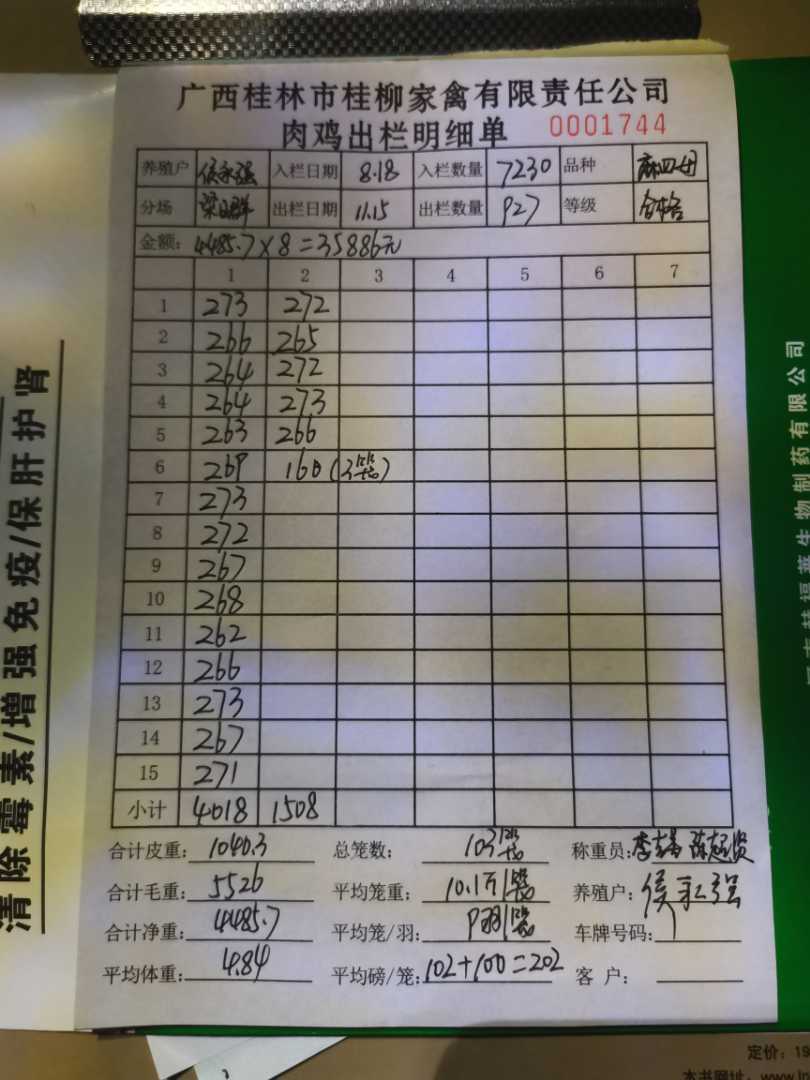 广西桂林市桂柳家禽有限责任公司
肉鸡出栏明细单 0001744
养殖户 侯永强 入栏日期 8.18 入栏数量 7230 品种 麻四母
分场 出栏日期 11.15 出栏数量 927 等级 合格
金额: 4485.7×8=35886元
1 2 3 4 5 6 7
1 273 272
2 266 265
3 264 272
4 264 273
5 263 266
6 269 160(3笼)
7 273
8 272
9 267
10 268
11 262
12 266
13 273
14 267
15 271
小计 4018 1508
合计皮重: 1040.3 总笼数: 103笼 称重员:
合计毛重: 5526 平均笼重: 10.1斤/笼 养殖户: 侯永强
合计净重: 4485.7 平均笼/羽: 9羽/笼 车牌号码:
平均体重: 4.84 平均磅/笼: 102+100=202 客 户:
清除霉素/增强免疫/保肝护肾
生物制药有限公司
定价: 19
本书网址: www.lp